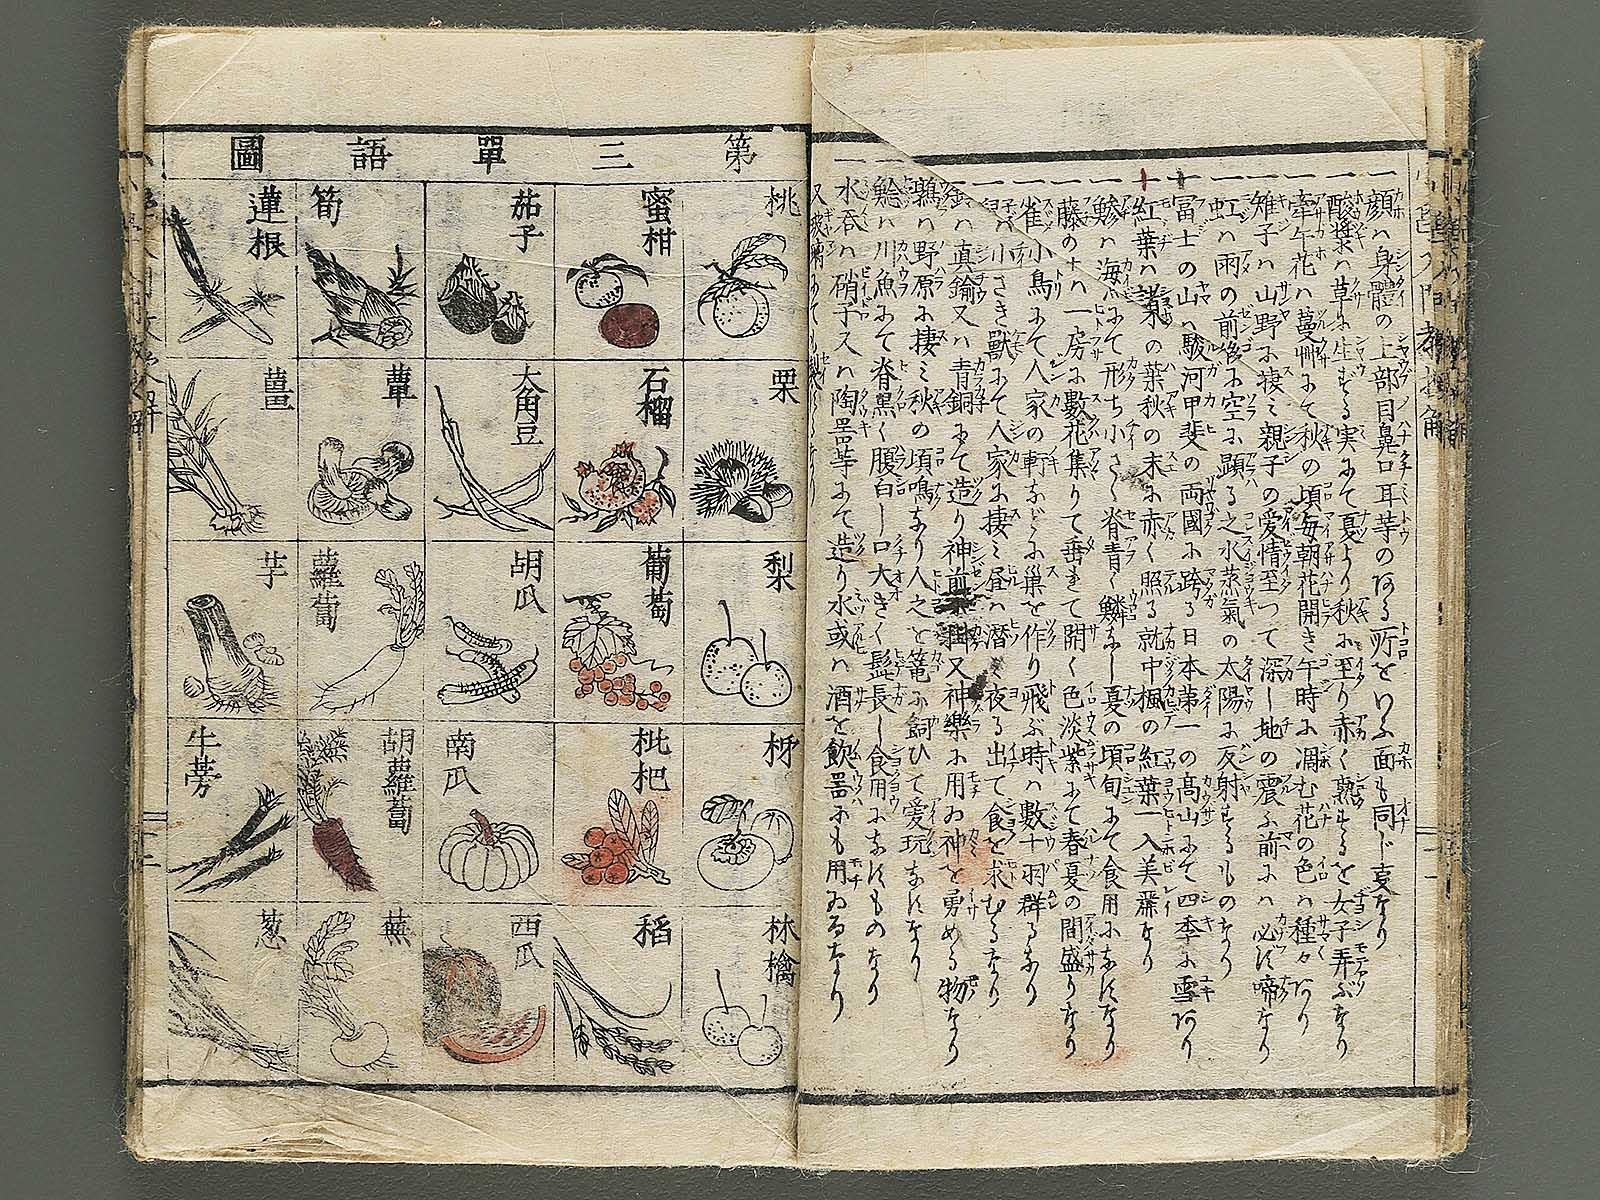 一顔ハ身體の上部目鼻口耳等のある所をいふ面も同じ事なり
一酸漿ハ草に生ずる実にて夏より秋に至り赤く熟するを女子弄ぶなり
一牽牛花ハ蔓艸にて秋の頃毎朝花開き午時に凋む花の色ハ種々あり
一雉子ハ山野に棲ミ親子の愛情至つて深し地の震ふ前にハ必ず啼なり
一虹ハ雨の前後に空に顕る之水蒸氣の太陽に反射するものなり
一富士の山ハ駿河甲斐の両國に跨る日本第一の高山にて四季に雪あり
一紅葉ハ諸木の葉秋の末に赤く照る就中楓の紅葉一入美麗なり
一鯵ハ海魚にて形ち小さく脊青く鱗なし夏の頃旬にて食用になすなり
一藤の花ハ一房に數花集りて垂れて開く色淡紫にて春夏の間盛りなり
一雀ハ小鳥にて人家の軒などに巣を作り飛ぶ時ハ數十羽群るなり
ハ小さき獸にて人家に棲ミ昼ハ潜ミ夜る出て食を求むるなり
ハ真鍮又ハ青銅にて造り神前に又神樂に用ゐ神を勇める物なり
鶉ハ野原に棲ミ秋の頃鳴なり人之を篭に飼ひて愛玩なすなり
鯰ハ川魚にて脊黒く腹白し口大きく髭長し食用になすものなり
水呑ハ硝子又ハ陶器等にて造り水或ハ酒を飲器にも用ゐるなり
第三單語圖
桃
栗
梨
柿
林檎
蜜柑
石榴
葡萄
枇杷
稻
茄子
大角豆
胡瓜
南瓜
西瓜
筍
蕈
蘿蔔
胡蘿蔔
蕪
蓮根
薑
芋
牛蒡
葱